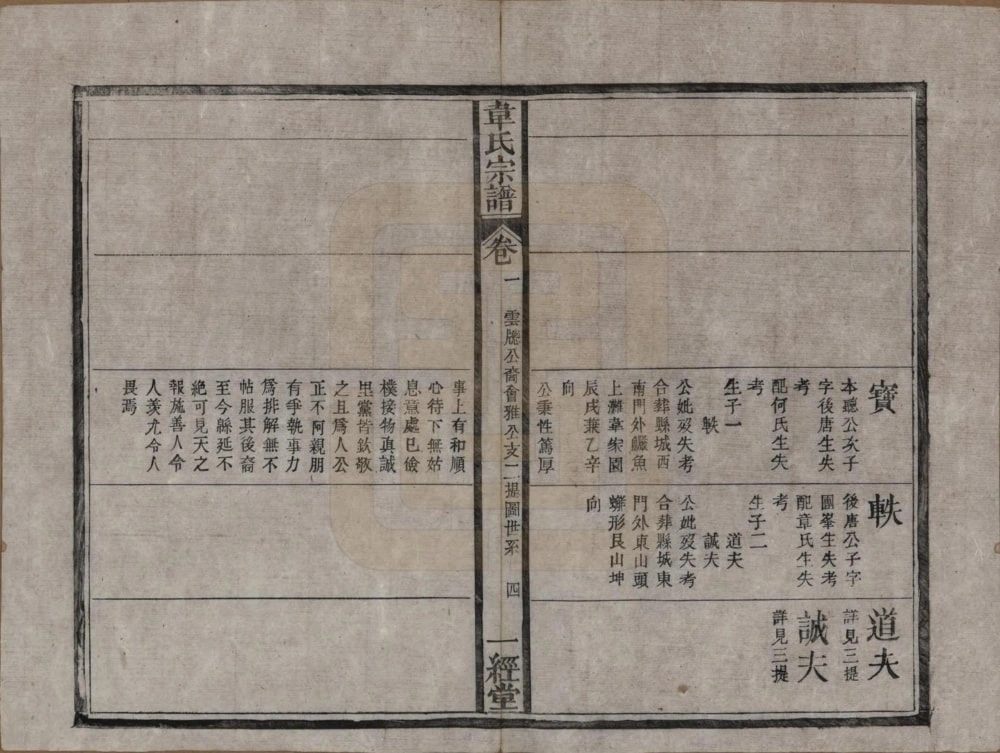 寶
本聽公次子
字後唐生失
考
配何氏生失
考
生子一
軼
公妣歿失考
合葬縣城西
南門外鱖魚
上灘韋家園
辰戌兼乙辛
向
公秉性篤厚
事上有和順
心待下無姑
息意處己儉
樸接物眞誠
里黨皆欽敬
之且爲人公
正不阿親朋
有爭執事力
爲排解無不
帖服其後裔
至今縣延不
絕可見天之
報施善人令
人羨尤令人
畏焉
軼
後唐公子字
團峯生失考
配章氏生失
考
生子二
道夫
誠夫
公妣歿失考
合葬縣城東
門外東山頭
形艮山坤
向
道夫
詳見三提
誠夫
詳見三提
韋氏宗譜
卷
一
雲牕公裔會雅公支二提圖世系
四
一經堂